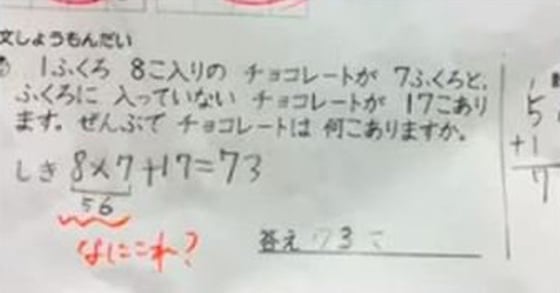 文しようもんだい
1ふくろ 8こ入りの チョコレートが 7ふくろと、
ふくろに 入っていない チョコレートが 17こあり
ます。ぜんぶで チョコレートは 何こありますか。
しき 8×7+17=73
56
なにこれ?
答え 73こ
5
+1
7